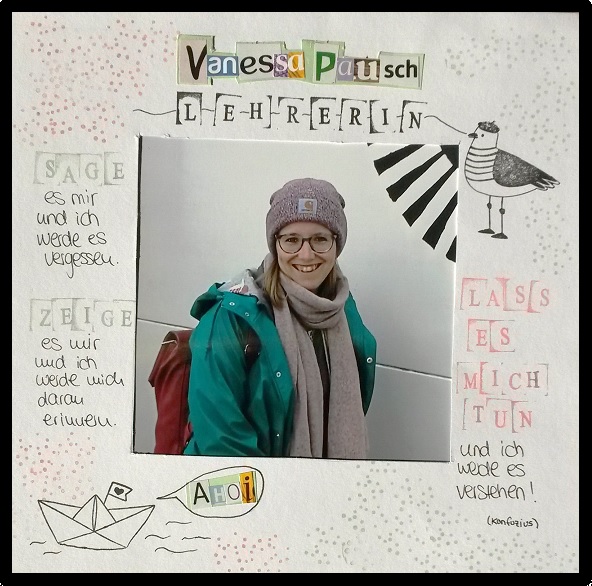 Vanessa Pausch
LEHRERIN
SAGE
es mir
und ich
werde es
vergessen.
ZEIGE
es mir
und ich
werde mich
daran
erinnern.
LASS
ES
MICH
TUN
und ich
werde es
verstehen!
(Konfuzius)
AHOi